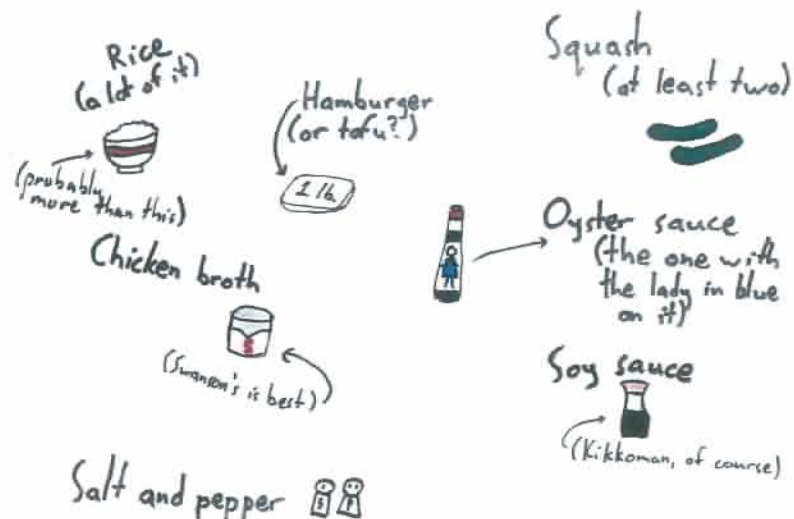 Rice
(a lot of it)
(probably
more than this)
Hamburger
(or tofu?)
1 lb.
Squash
(at least two)
Chicken broth
S
(Swanson's is best)
Oyster sauce
(the one with
the lady in blue
on it)
Soy sauce
(Kikkoman, of course)
Salt and pepper
S P